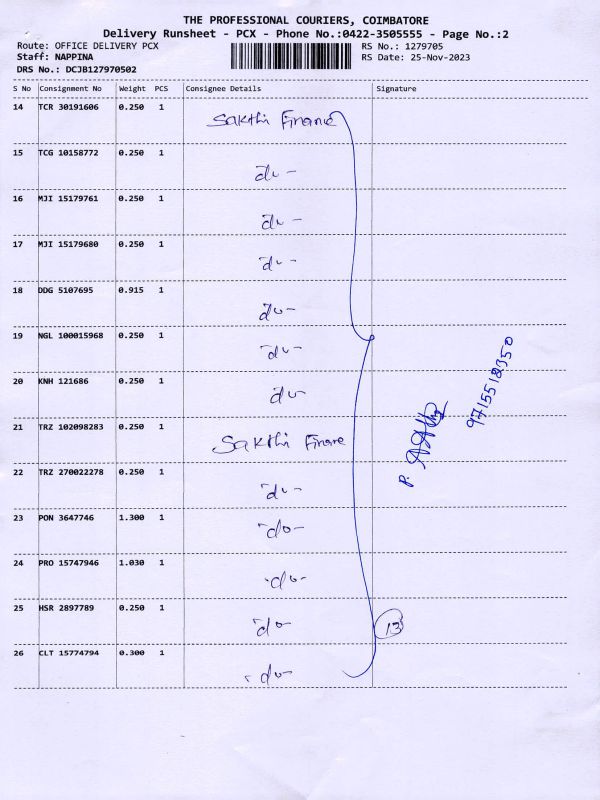 THE PROFESSIONAL COURIERS, COIMBATORE
Delivery Runsheet - PCX - Phone No.:0422-3505555 - Page No.:2
Route: OFFICE DELIVERY PCX RS No.: 1279705
Staff: NAPPINA RS Date: 25-Nov-2023
DRS No.: DCJB127970502
S No Consignment No Weight PCS Consignee Details Signature
14 TCR 30191606 0.250 1
Sakthi Finance
15 TCG 10158772 0.250 1
do -
16 MJI 15179761 0.250 1
do -
17 MJI 15179680 0.250 1
-do-
18 DDG 5107695 0.915 1
do-
19 NGL 100015968 0.250 1
-do-
20 KNH 121686 0.250 1
do-
21 TRZ 102098283 0.250 1
Sakthi Finane
22 TRZ 270022278 0.250 1
-do-
23 PON 3647746 1.300 1
-do-
24 PRO 15747946 1.030 1
-do-
25 HSR 2897789 0.250 1
-do-
26 CLT 15774794 0.300 1
-do-
P.
9715518350
13